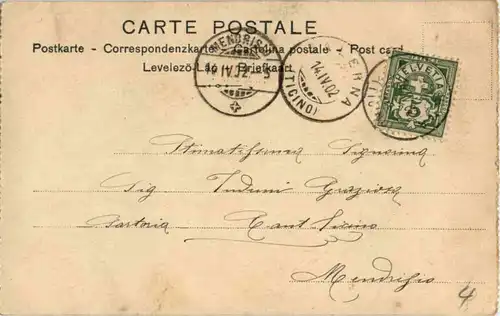 CARTE POSTALE
Postkarte - Correspondenzkarte - Cartolina postale - Post card
Levelező-Lap - Briefkaart
MENDRISIO
14.IV.02
14.IV.02
(TICINO)
HELVETIA
5
Stimatissima Signorina
Sig Induni Graziosa
Sartoria Cant Ticino
Mendrisio
4